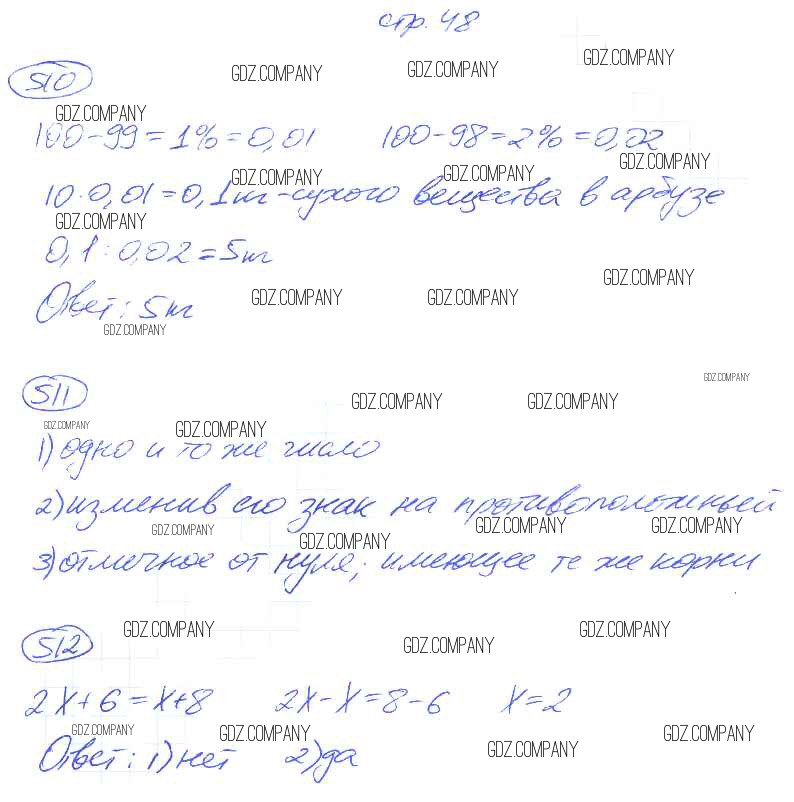 стр. 48
GDZ.COMPANY GDZ.COMPANY GDZ.COMPANY
510
GDZ.COMPANY
100-99=1%=0,01 100-98=2%=0,02
GDZ.COMPANY GDZ.COMPANY GDZ.COMPANY
10·0,01=0,1кг-сухого вещества в арбузе
GDZ.COMPANY
0,1:0,02=5кг
GDZ.COMPANY
Ответ: 5кг
GDZ.COMPANY GDZ.COMPANY
GDZ.COMPANY
GDZ.COMPANY
511
GDZ.COMPANY GDZ.COMPANY
GDZ.COMPANY GDZ.COMPANY
1) одно и то же число
2) изменив его знак на противоположный
GDZ.COMPANY GDZ.COMPANY GDZ.COMPANY GDZ.COMPANY
3) отличное от нуля; имеющее те же корни
GDZ.COMPANY GDZ.COMPANY GDZ.COMPANY
512
2x+6=x+8 2x-x=8-6 x=2
GDZ.COMPANY GDZ.COMPANY GDZ.COMPANY GDZ.COMPANY
Ответ: 1) нет 2) да